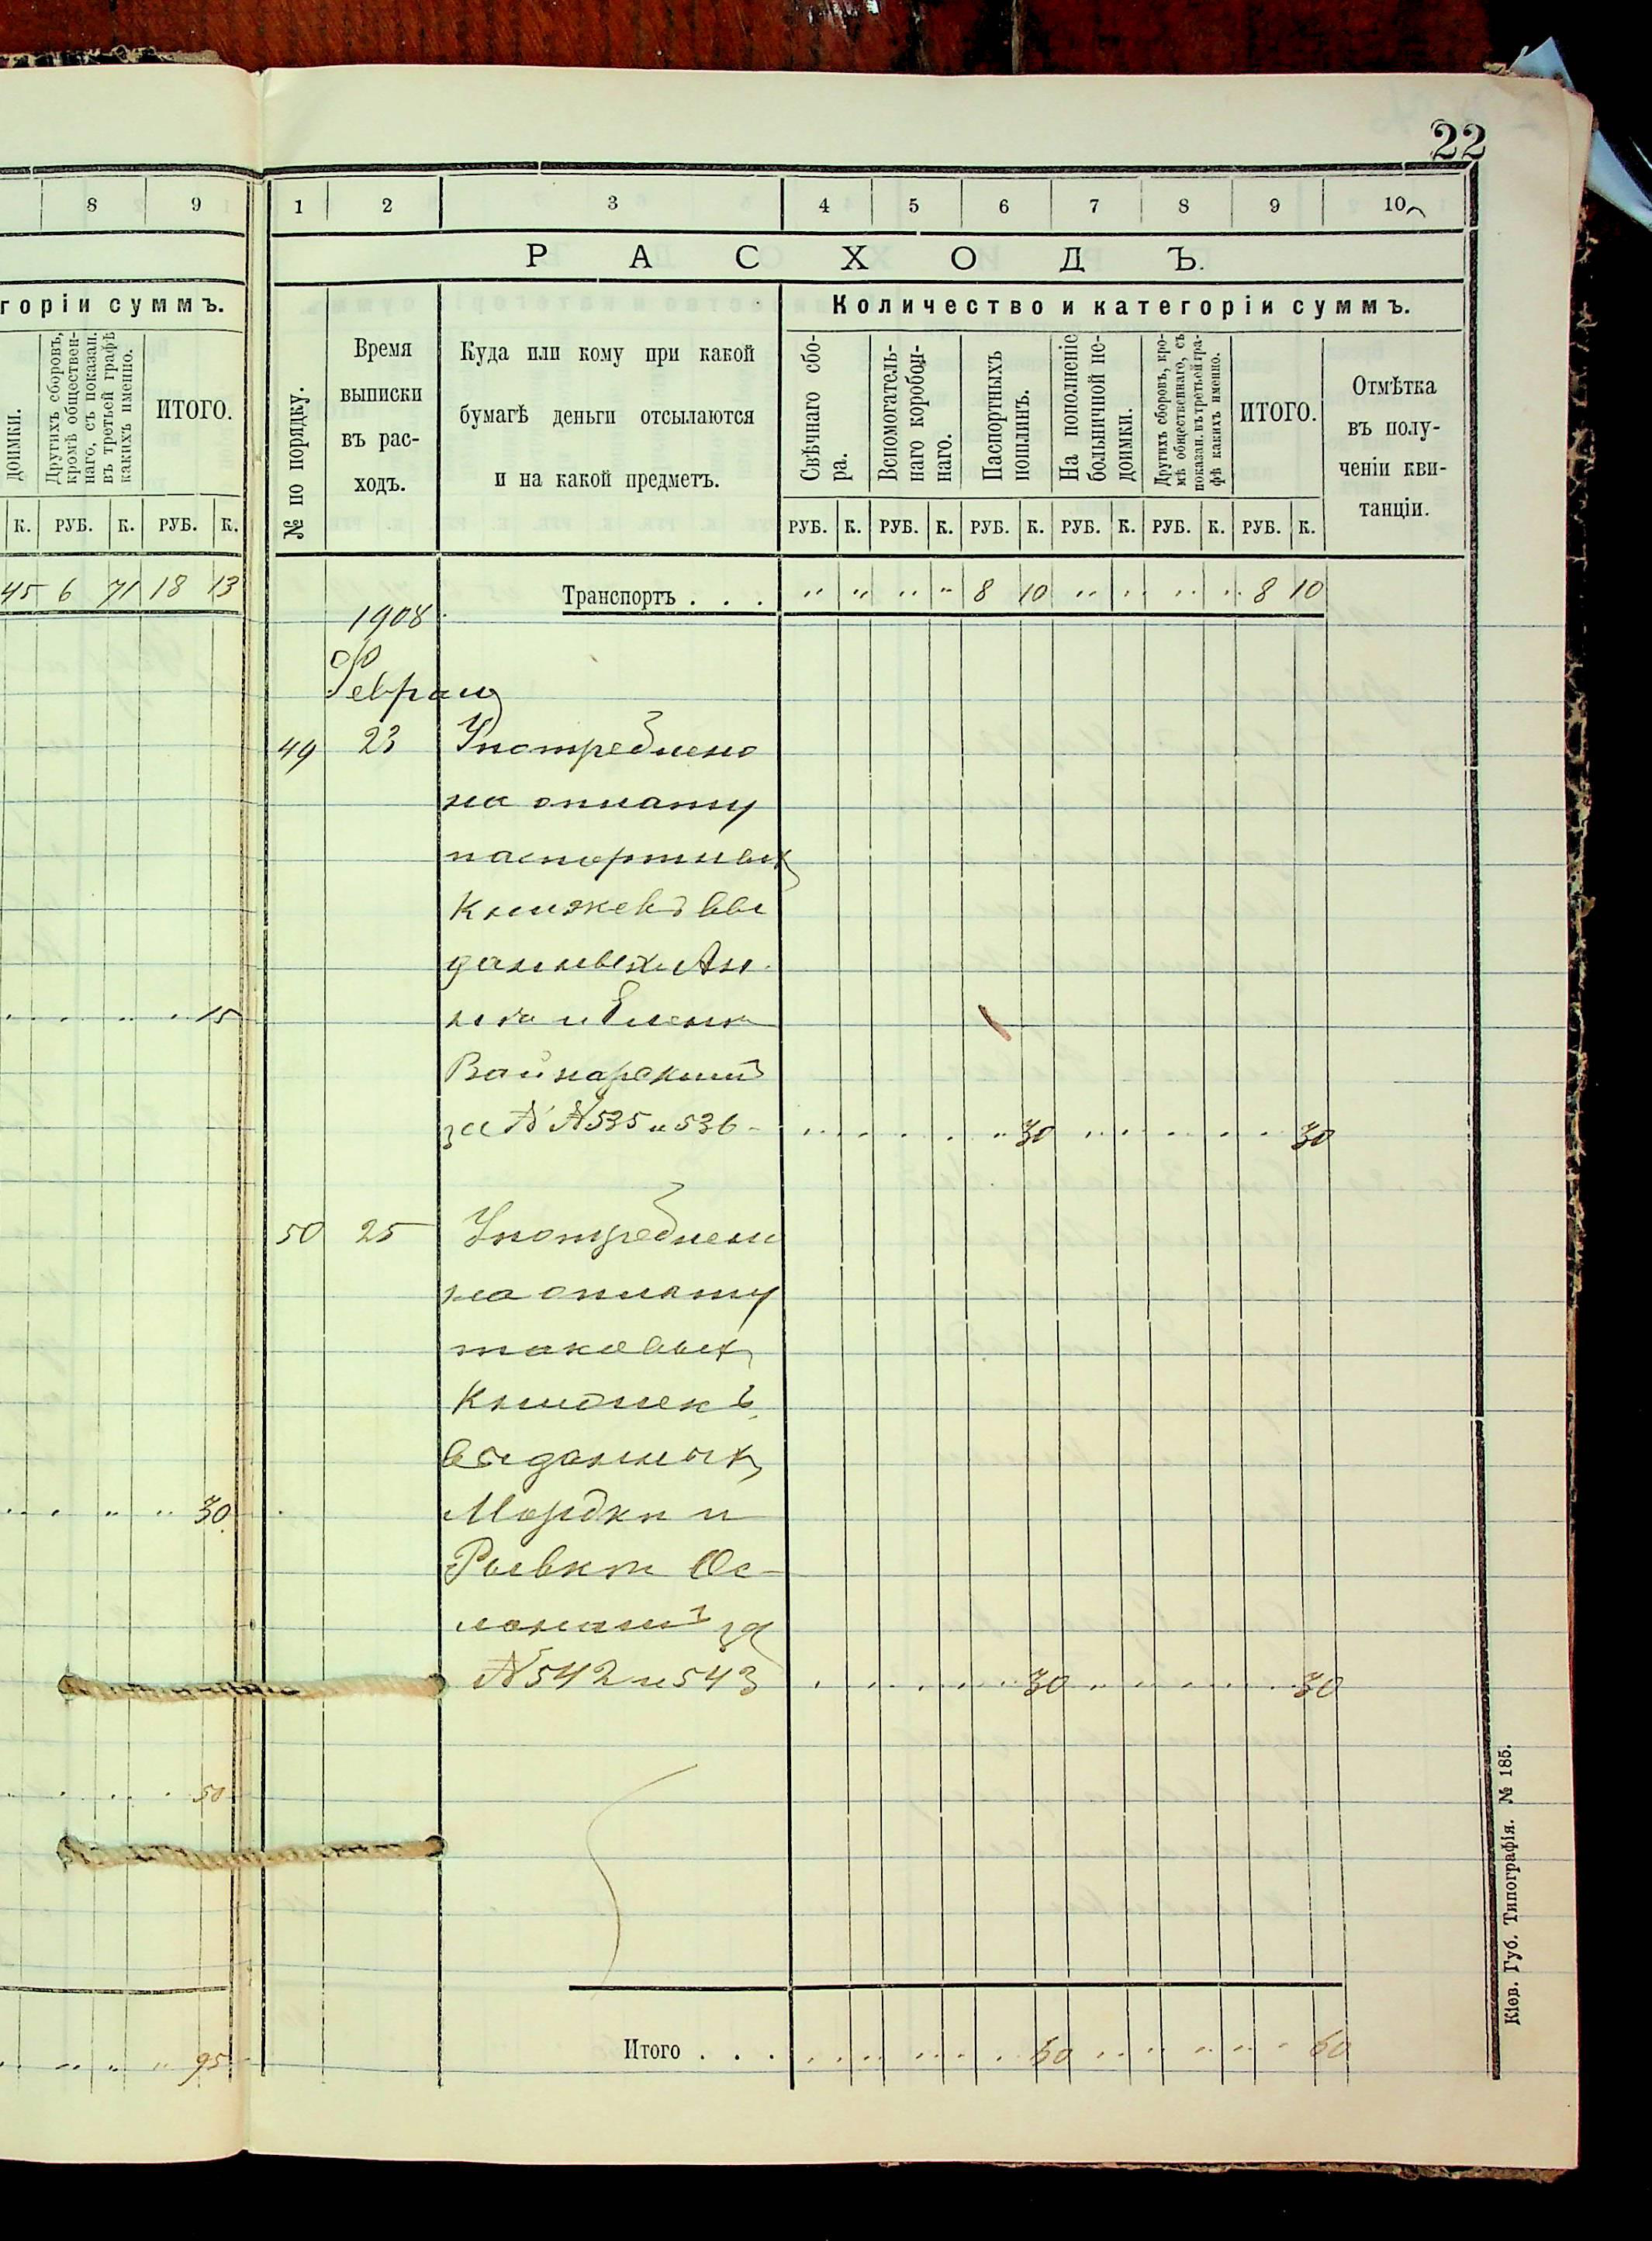 22
8 9
1 2 3 4 5 6 7 8 9 10
РАСХОДЪ.
горіи суммъ.
Количество и категоріи суммъ.
доимки.
Другихъ сборовъ,
кромѣ обществен-
наго, съ показан.
въ третьей графѣ
какихъ именно.
ИТОГО.
№ по порядку.
Время
выписки
въ рас-
ходъ.
Куда или кому при какой
бумагѣ деньги отсылаются
и на какой предметъ.
Свѣчнаго сбо-
ра.
Вспомогатель-
наго коробоч-
наго.
Паспортныхъ
пошлинъ.
На пополненіе
больничной не-
доимки.
Другихъ сборовъ, кро-
мѣ общественнаго, съ
показан. въ третьей гра-
фѣ какихъ именно.
ИТОГО.
Отмѣтка
въ полу-
ченіи кви-
танціи.
К. РУБ. К. РУБ. К.
РУБ. К. РУБ. К. РУБ. К. РУБ. К. РУБ. К. РУБ. К.
45 6 71 18 13
Транспортъ . . . " " " " 8 10 " " " " 8 10
1908
Февраля
49 23 Употреблено
на оплату
паспортныхъ
Книжекъ вы
данныхъ
15
и
за №№ 535 и 536 - 30 30
50 25 Употреблено
на оплату
таковыхъ
Книжекъ
выданныхъ
30
Мордки и
Рывки Ос-
за
№ 542 и 543 30 30
50
Итого . . . 60 60
95
Кіев. Губ. Типографія. № 185.